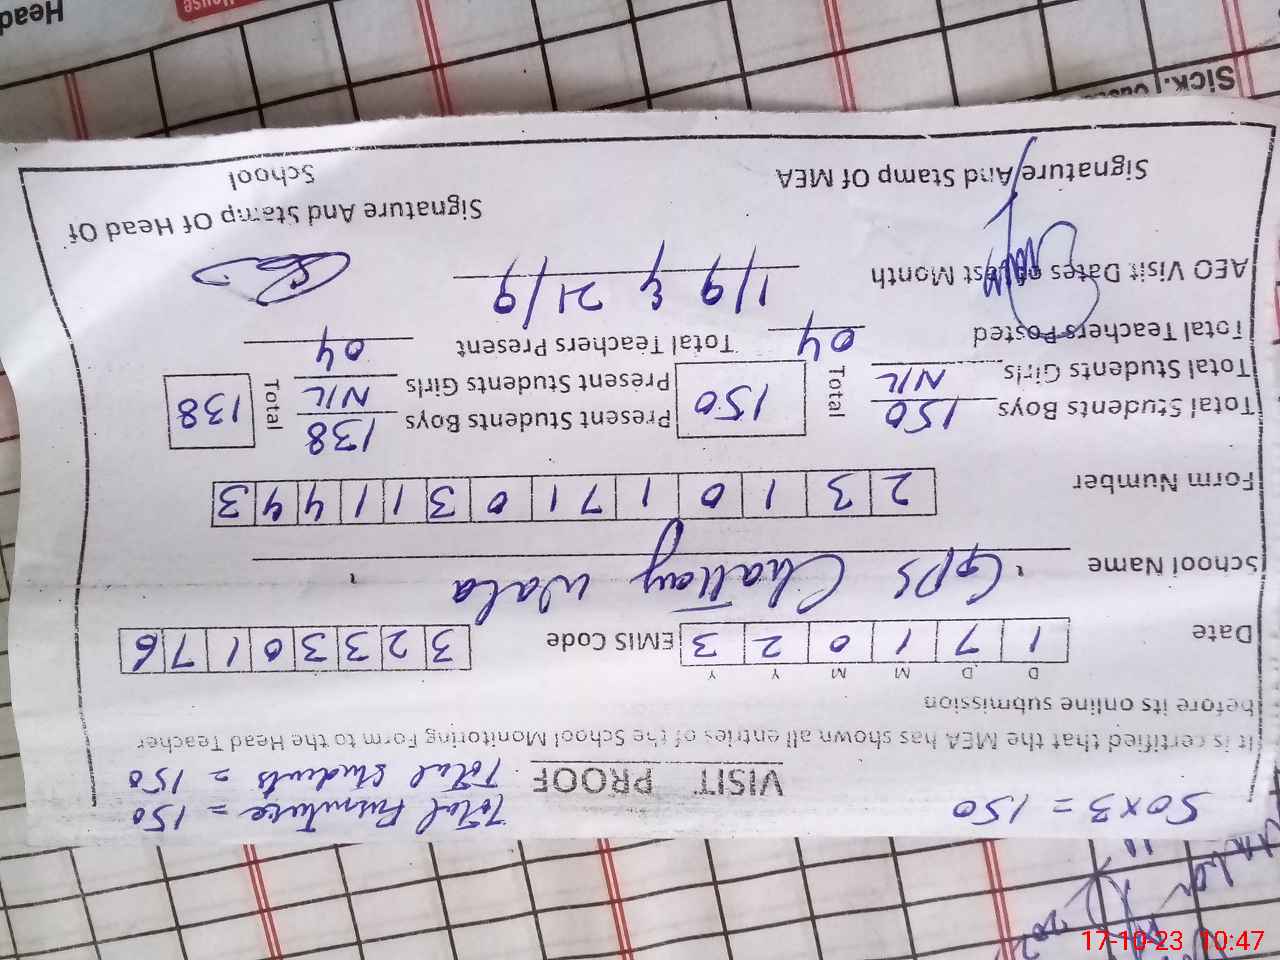 50x3 = 150
Total Furniture = 150
Total Students = 150
VISIT PROOF
It is certified that the MEA has shown all entries of the School Monitoring Form to the Head Teacher
before its online submission
D D M M Y Y
Date 1 7 1 0 2 3 EMIS Code 3 2 3 3 0 1 7 6
School Name GPS Chattay Wala
Form Number 2 3 1 0 1 7 1 0 3 1 1 4 4 3
Total Students Boys 150 Total 150 Present Students Boys 138 Total 138
Total Students Girls NIL Present Students Girls NIL
Total Teachers Posted 04 Total Teachers Present 04
AEO Visit Dates of last Month 1/9 & 21/9
Signature And Stamp Of MEA Signature And Stamp Of Head Of
School
Sick.
Head
House
17-10-23 10:47